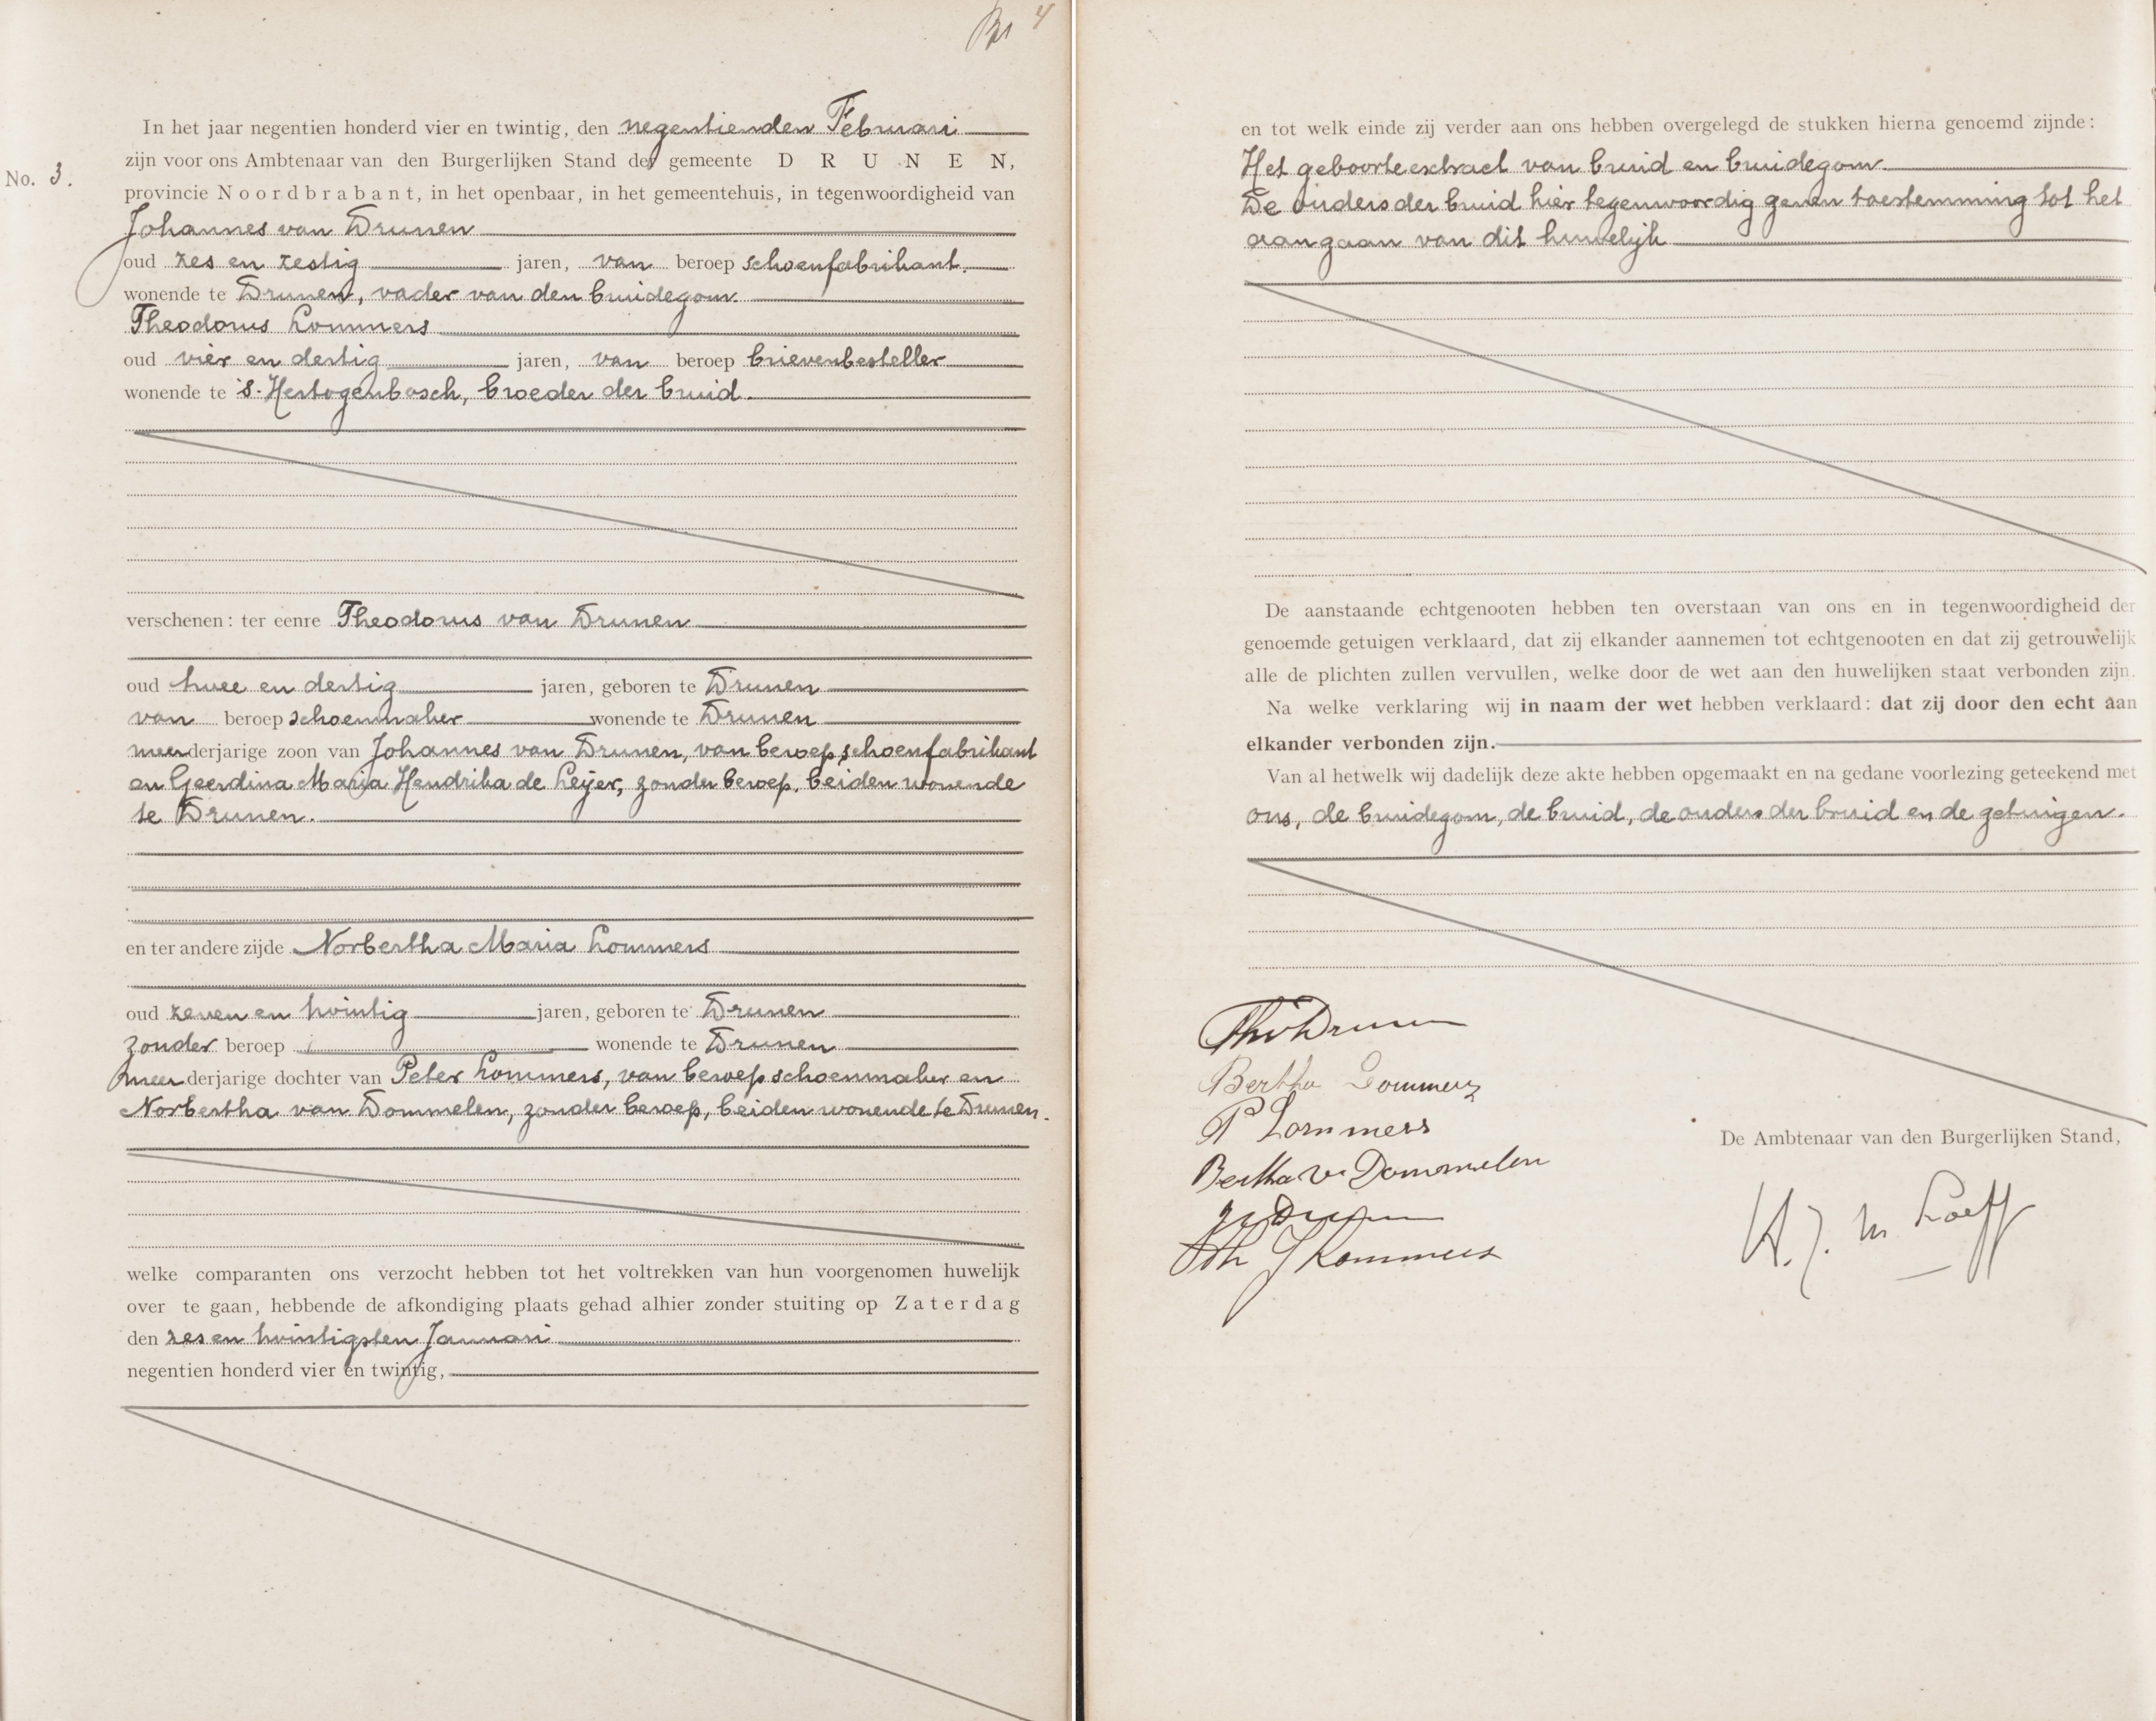 4
In het jaar negentien honderd vier en twintig, den negentienden Februari
zijn voor ons Ambtenaar van den Burgerlijken Stand der gemeente DRUNEN,
No. 3.
provincie Noordbrabant, in het openbaar, in het gemeentehuis, in tegenwoordigheid van
Johannes van Drunen
oud zes en zestig jaren, van beroep schoenfabrikant.
wonende te Drunen, vader van den bruidegom.
Theodorus Lommers
oud vier en dertig jaren, van beroep brievenbesteller
wonende te 's-Hertogenbosch, broeder der bruid.
verschenen: ter eenre Theodorus van Drunen
oud twee en dertig jaren, geboren te Drunen
van beroep schoenmaker wonende te Drunen
meerderjarige zoon van Johannes van Drunen, van beroep schoenfabrikant
en Geerdina Maria Hendrika de Leijer, zonder beroep, beiden wonende
te Drunen.
en ter andere zijde Norbertha Maria Lommers
oud zeven en twintig jaren, geboren te Drunen
zonder beroep wonende te Drunen
meerderjarige dochter van Peter Lommers, van beroep schoenmaker en
Norbertha van Dommelen, zonder beroep, beiden wonende te Drunen.
welke comparanten ons verzocht hebben tot het voltrekken van hun voorgenomen huwelijk
over te gaan, hebbende de afkondiging plaats gehad alhier zonder stuiting op Zaterdag
den zes en twintigsten Januari
negentien honderd vier en twintig,
en tot welk einde zij verder aan ons hebben overgelegd de stukken hierna genoemd zijnde:
Het geboorteextract van bruid en bruidegom.
De ouders der bruid hier tegenwoordig geven toestemming tot het
aangaan van dit huwelijk
De aanstaande echtgenooten hebben ten overstaan van ons en in tegenwoordigheid der
genoemde getuigen verklaard, dat zij elkander aannemen tot echtgenooten en dat zij getrouwelijk
alle de plichten zullen vervullen, welke door de wet aan den huwelijken staat verbonden zijn.
Na welke verklaring wij in naam der wet hebben verklaard: dat zij door den echt aan
elkander verbonden zijn.
Van al hetwelk wij dadelijk deze akte hebben opgemaakt en na gedane voorlezing geteekend met
ons, de bruidegom, de bruid, de ouders der bruid en de getuigen.
Th v Drunen
Bertha Lommers
P Lommers
Bertha v. Dommelen
J v Drunen
Th J Lommers
De Ambtenaar van den Burgerlijken Stand,
H. J. M Loeff